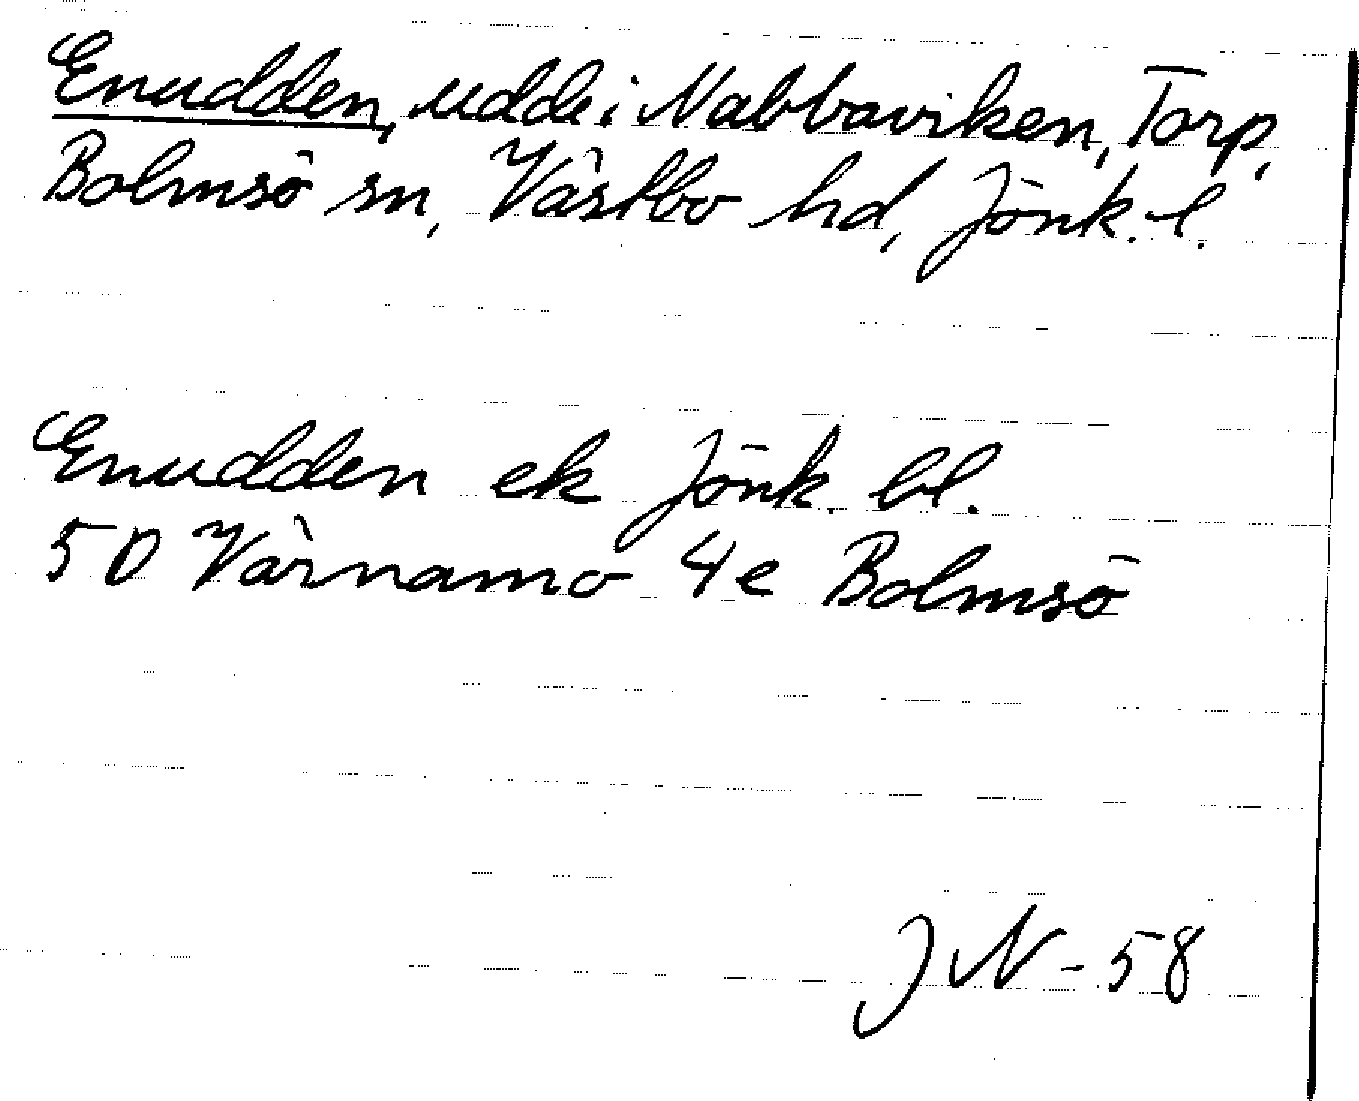 Enudden, udde i Nabbaviken, Torp,
Bolmsö sn, Västbo hd, Jönk. l.
Enudden ek Jönk. bl.
5 D Värnamo 4 e Bolmsö
JN-58